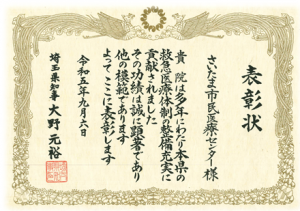 表彰状
さいたま市民医療センター様
貴院は多年にわたり本県の
救急医療体制の整備充実に
貢献されました
その功績は誠に顕著であり
他の模範であります
よってここに表彰します
令和五年九月六日
埼玉県知事 大野元裕